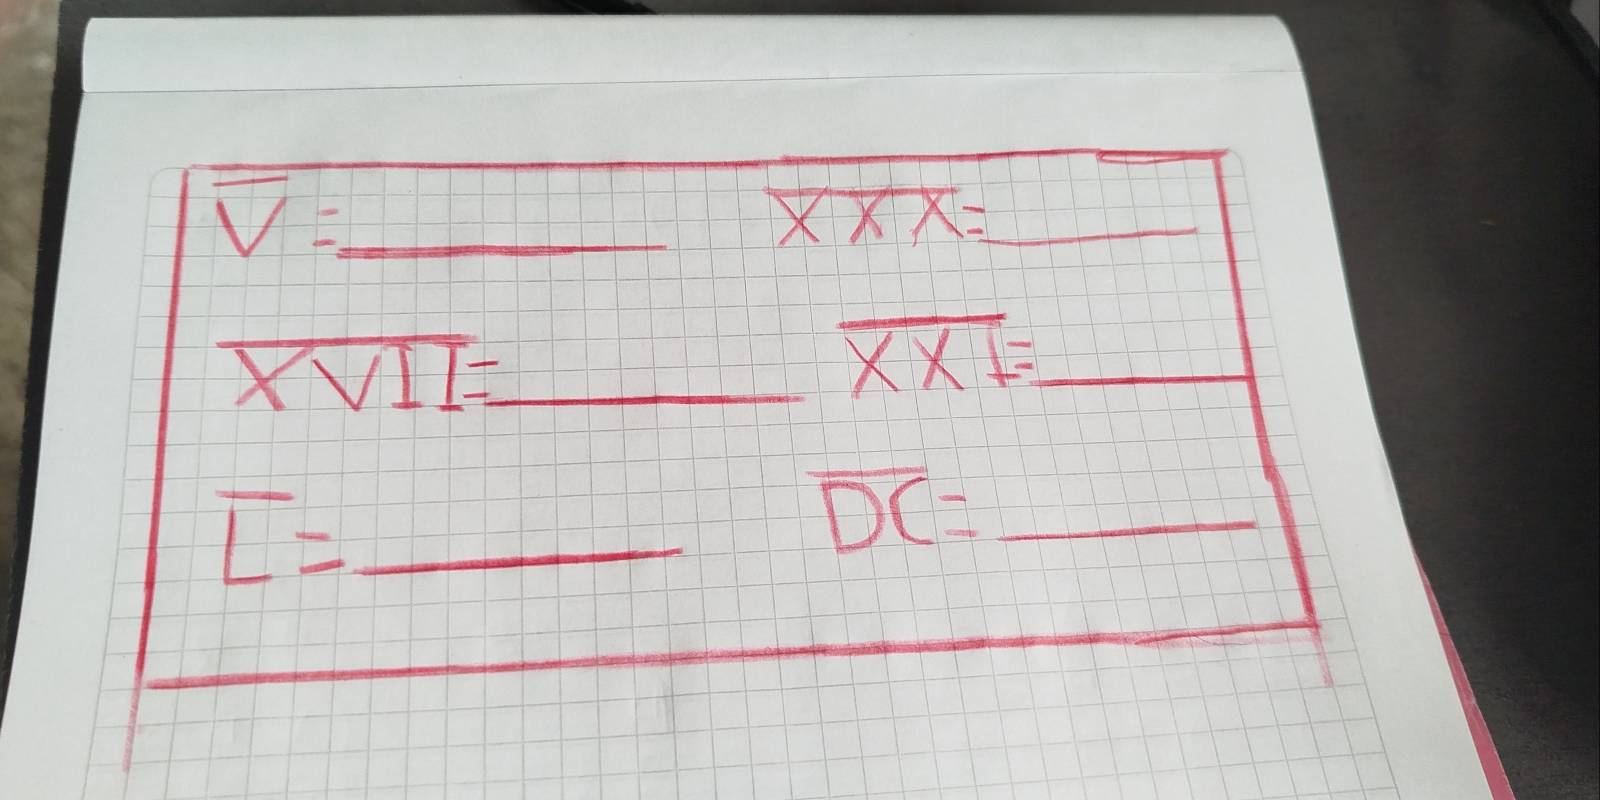 V̅ = ________ X̅X̅X̅ = ________
X̅V̅I̅I̅ = ________ X̅X̅I̅ = ________
L̅ = ________ D̅C̅ = ________